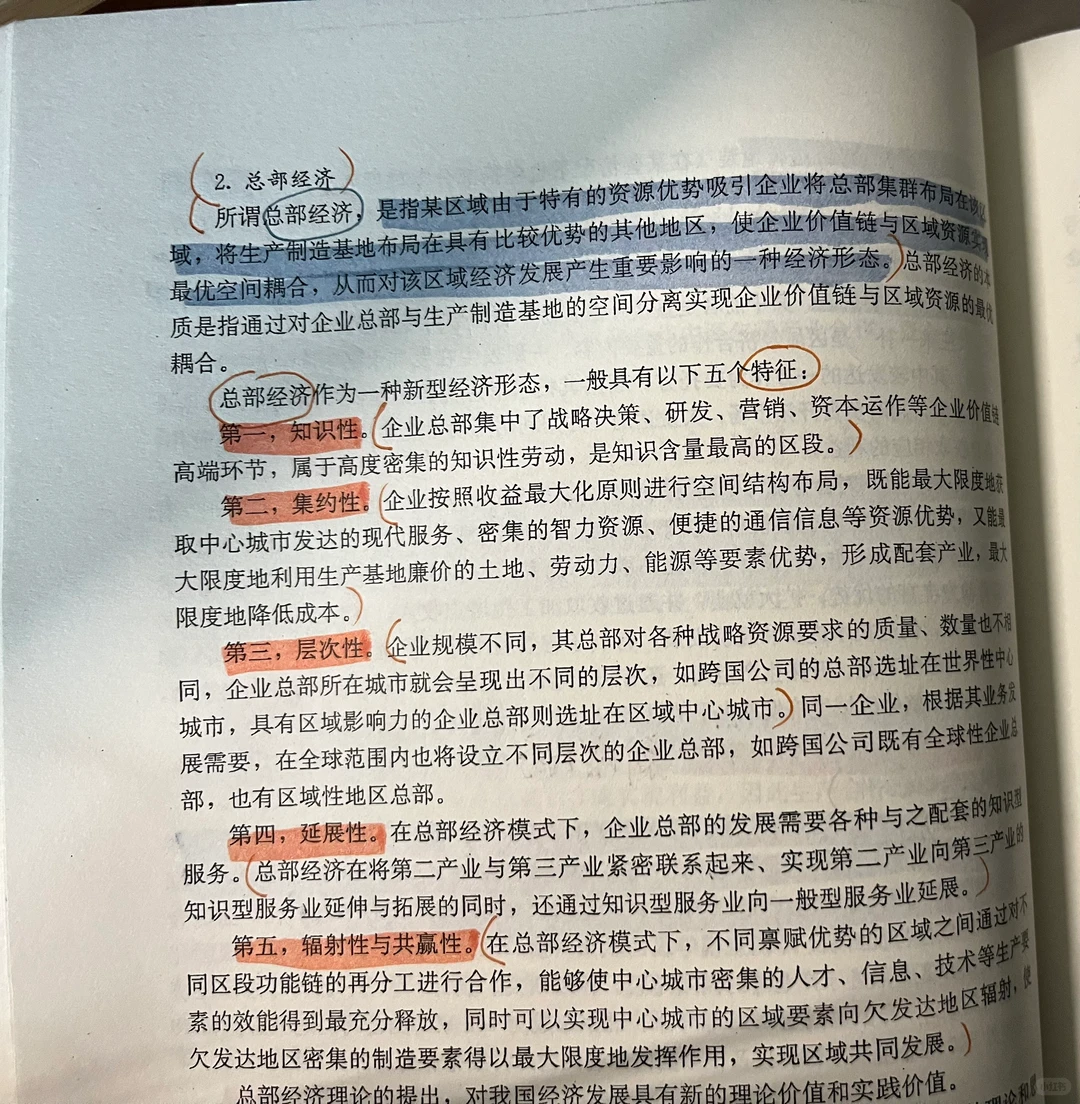 2. 总部经济
所谓总部经济，是指某区域由于特有的资源优势吸引企业将总部集群布局在该区
域，将生产制造基地布局在具有比较优势的其他地区，使企业价值链与区域资源实现
最优空间耦合，从而对该区域经济发展产生重要影响的一种经济形态。总部经济的本
质是指通过对企业总部与生产制造基地的空间分离实现企业价值链与区域资源的最优
耦合。
总部经济作为一种新型经济形态，一般具有以下五个特征：
第一，知识性。企业总部集中了战略决策、研发、营销、资本运作等企业价值链
高端环节，属于高度密集的知识性劳动，是知识含量最高的区段。
第二，集约性。企业按照收益最大化原则进行空间结构布局，既能最大限度地获
取中心城市发达的现代服务、密集的智力资源、便捷的通信信息等资源优势，又能最
大限度地利用生产基地廉价的土地、劳动力、能源等要素优势，形成配套产业，最大
限度地降低成本。
第三，层次性。企业规模不同，其总部对各种战略资源要求的质量、数量也不相
同，企业总部所在城市就会呈现出不同的层次，如跨国公司的总部选址在世界性中心
城市，具有区域影响力的企业总部则选址在区域中心城市。同一企业，根据其业务发
展需要，在全球范围内也将设立不同层次的企业总部，如跨国公司既有全球性企业总
部，也有区域性地区总部。
第四，延展性。在总部经济模式下，企业总部的发展需要各种与之配套的知识型
服务。总部经济在将第二产业与第三产业紧密联系起来、实现第二产业向第三产业的
知识型服务业延伸与拓展的同时，还通过知识型服务业向一般型服务业延展。
第五，辐射性与共赢性。在总部经济模式下，不同禀赋优势的区域之间通过对不
同区段功能链的再分工进行合作，能够使中心城市密集的人才、信息、技术等生产要
素的效能得到最充分释放，同时可以实现中心城市的区域要素向欠发达地区辐射，使
欠发达地区密集的制造要素得以最大限度地发挥作用，实现区域共同发展。
总部经济理论的提出，对我国经济发展具有新的理论价值和实践价值。
理论和
小红书